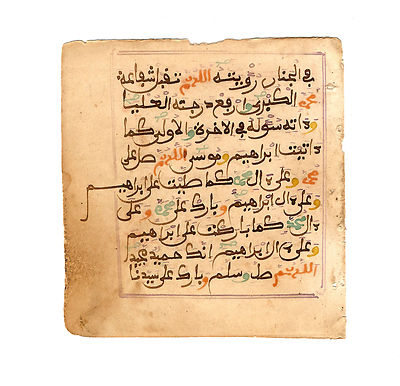 في الجنان رؤيته اللهم تقبل شفاعة
محمد الكبرى وارفع درجته العليا
وءاته سؤله في الاخرة والاولى كما
ءاتيت ابراهيم وموسى اللهم صل على
محمد وعلى ءال محمد كما صليت على ابراهيم
وعلى ءال ابراهيم وبارك على محمد وعلى
ءال محمد كما باركت على ابراهيم
وعلى ءال ابراهيم انك حميد مجيد
اللهم صل وسلم وبارك على سيدنا